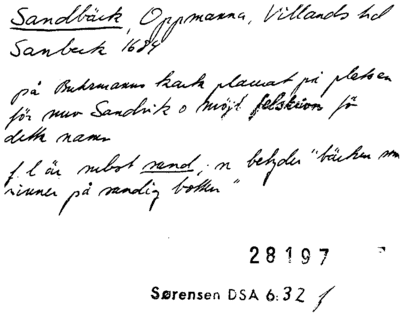 Sandbäck, Oppmanna, Villands hd
Sanbeck 1684
på Buhrmanns karta placerat på platsen
för nuv Sandvik o möjl felskrivn för
detta namn
f l är subst sand, n betyder "bäcken som
rinner på sandig botten"
28197
Sørensen DSA 6:32 f